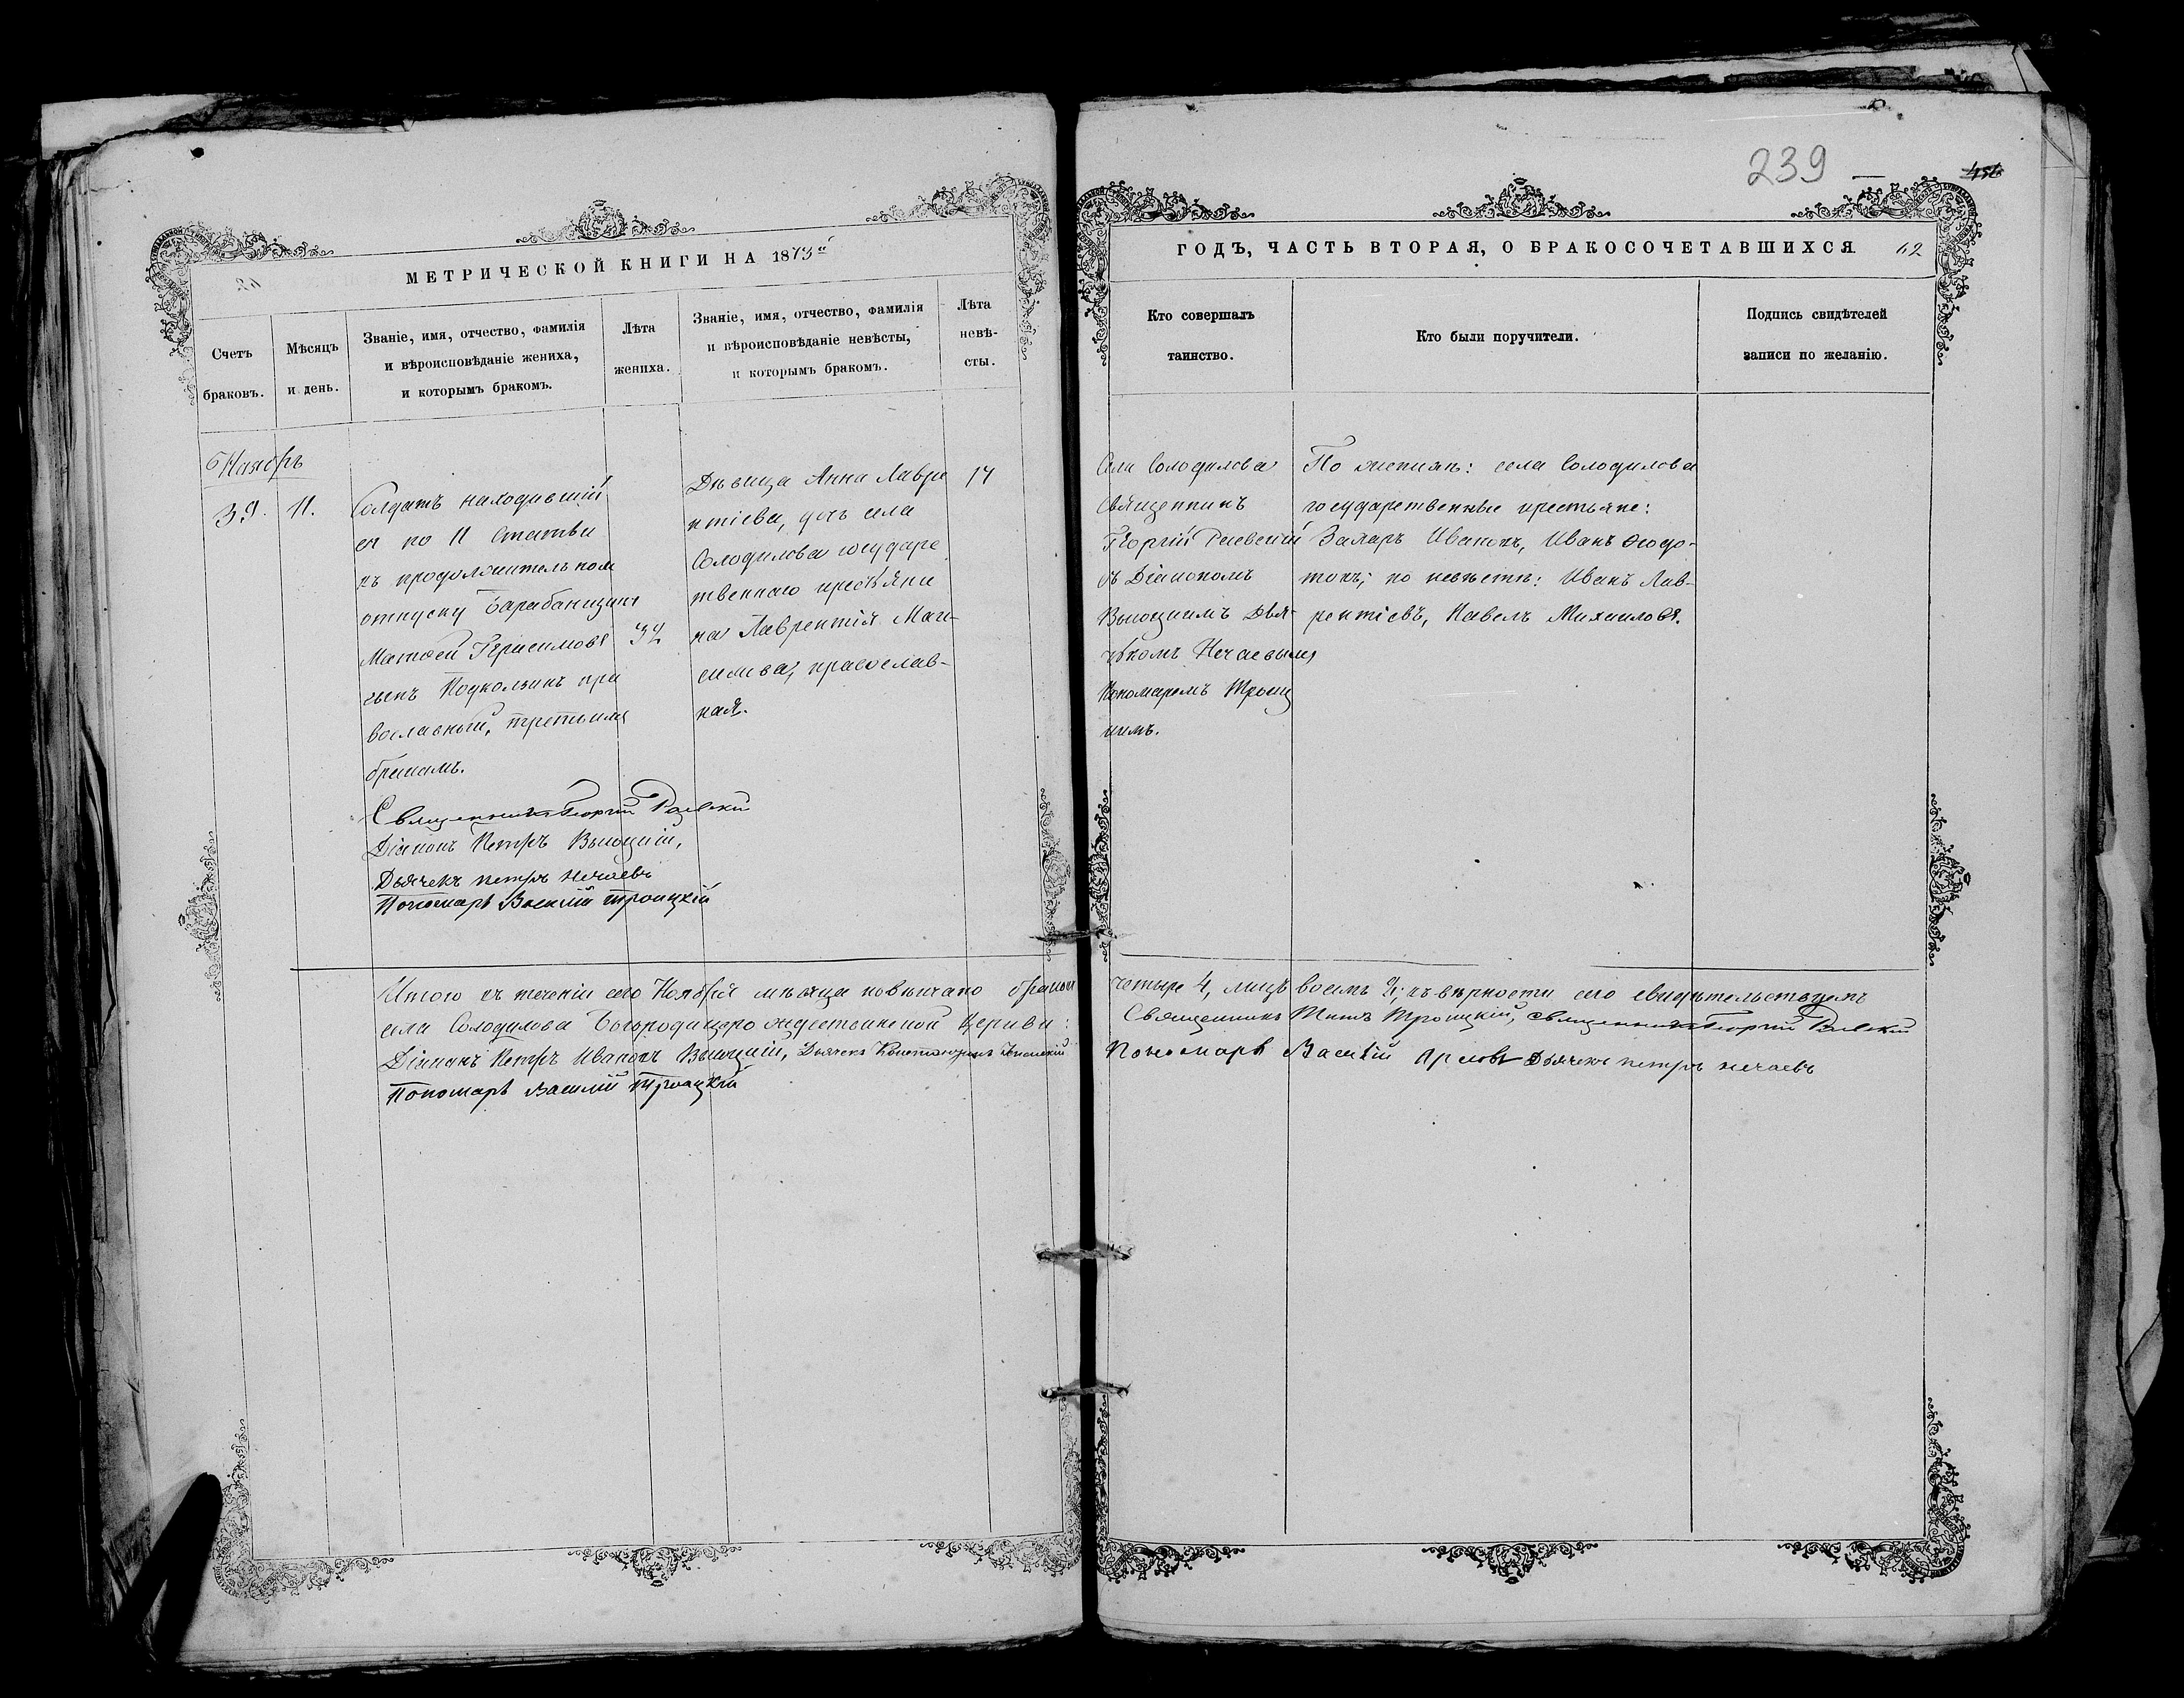 239
МЕТРИЧЕСКОЙ КНИГИ НА 1873й
Счетъ
браковъ.
Мѣсяцъ
и день.
Званіе, имя, отчество, фамилія
и вѣроисповѣданіе жениха,
и которымъ бракомъ.
Лѣта
жениха.
Званіе, имя, отчество, фамилія
и вѣроисповѣданіе невѣсты,
и которымъ бракомъ.
Лѣта
невѣ-
сты.
Ноябрь
39. 11.
Солдатъ находившій
ся по 11 Статьи
въ продолжительном
отпуску Барабанщикъ
Матѳей Герасимовъ
сынъ Подкользинъ пра
вославный, третьимъ
бракомъ.
32
Дѣвица Анна Лавре
нтіева, дочь села
Солодилова государс
твеннаго крестьяни
на Лаврентія Мак-
симова, православ-
ная.
Священникъ Георгій Раевскій
Діаконъ Петръ Высоцкій,
Дьячекъ петръ нечаевъ
Пономарь Василій троицкій
Итого въ теченіи сего Ноября мѣсяца повѣнчано
села Солодилова Богородицерождественской Церкви:
Діаконъ Петръ Ивановъ Высоцкій, Дьячекъ Константинъ
Пономарь Василій Троицкій
ГОДЪ, ЧАСТЬ ВТОРАЯ, О БРАКОСОЧЕТАВШИХСЯ 62
Кто совершалъ
таинство.
Кто были поручители.
Подпись свидѣтелей
записи по желанію.
Села Солодилова
Священникъ
Георгій Раевскій
съ Діакономъ
Высоцкимъ Дья-
чкомъ Нечаевымъ
Пономаремъ Троиц
кимъ.
По женихѣ: села Солодилова
государственные крестьяне:
Захаръ Ивановъ, Иванъ Ѳедо-
товъ; по невѣстѣ: Иванъ Лав-
рентіевъ, Павелъ Михаиловъ.
четыре 4, лицъ восемь 8; въ вѣрности сего свидѣтельствуемъ
Священникъ Троицкій, священникъ Георгій Раевскій
Пономарь Василій Орловъ Дьячекъ петръ нечаевъ